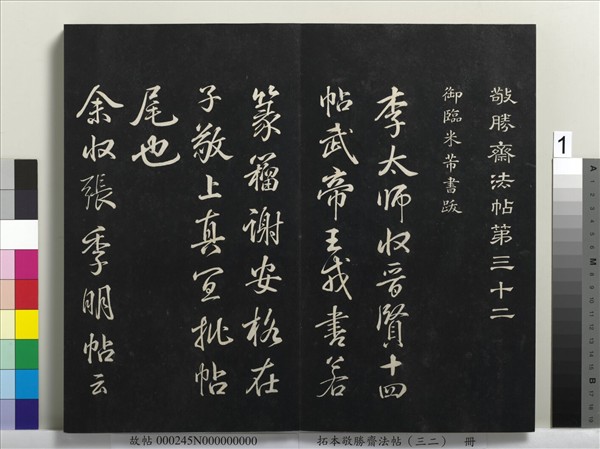 敬勝齋法帖第三十二
御臨米芾書跋
李太师收晋賢十四
帖武帝王戎書若
篆籀謝安格在
子敬上真宜批帖
尾也
余收張季明帖云
1
A
M
B
故帖 000245N000000000
拓本敬勝齋法帖(三二) 冊